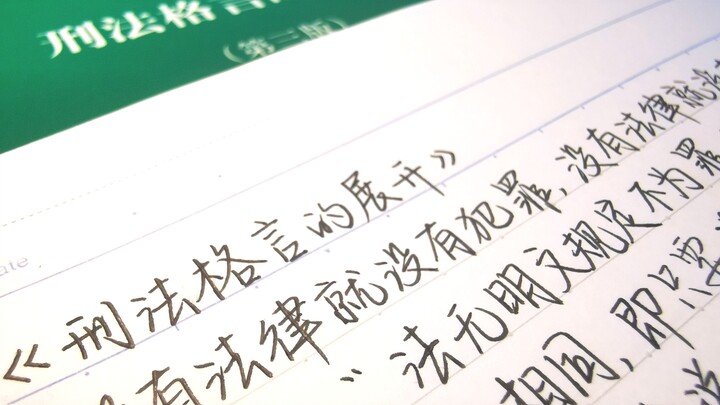 刑法格言
（第三版）
ate
《刑法格言的展开》
有法律就没有犯罪，没有法律就没
法无明文规定不为罪
相同，即只要